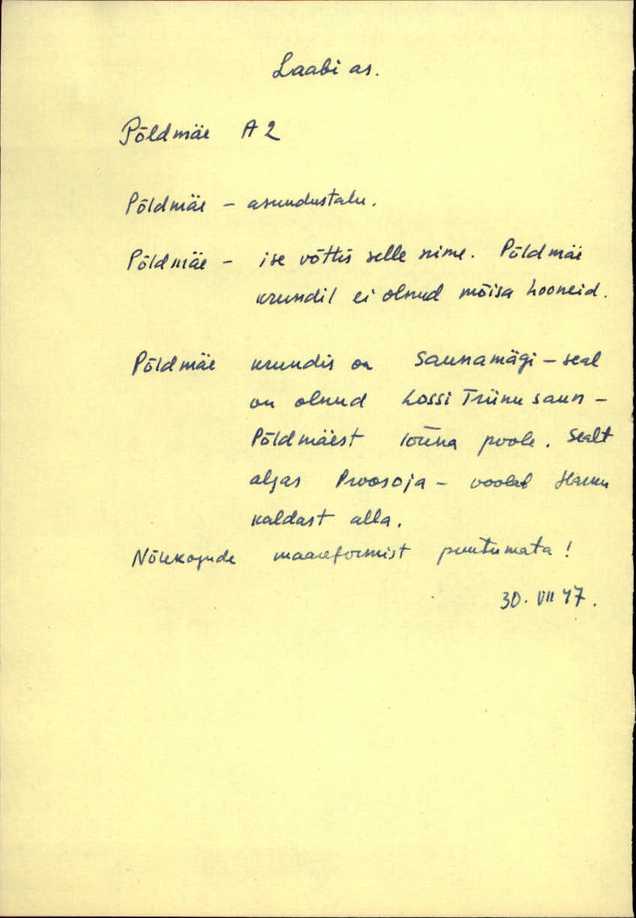 Laabi as.
Põldmäe A2
Põldmäe – asundustalu.
Põldmäe – ise võttis selle nime. Põldmäe
krundil ei olnud mõisa hooneid.
Põldmäe krundis on Saunamägi – seal
on olnud Lossi Triinu saun –
Põldmäest lõuna poole. Sealt
algas Proosoja – voolab Harku
kaldast alla.
Nõukogude maareformist puutumata!
30. VII 47.